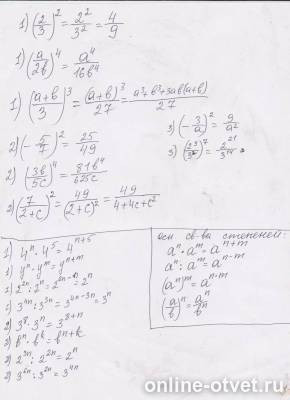 1) (2/3)² = 2²/3² = 4/9
1) (a/2b)⁴ = a⁴/16b⁴
1) ((a+b)/3)³ = (a+b)³/27 = (a³+b³+3ab(a+b))/27
2) (-5/7)² = 25/49
2) (3b/5c)⁴ = 81b⁴/625c
2) (7/(2+c))² = 49/(2+c)² = 49/(4+4c+c²)
3) (-3/a)² = 9/a²
3) (2³/3²)⁷ = 2²¹/3¹⁴
1) 4ⁿ · 4⁵ = 4ⁿ⁺⁵
1) yⁿ · yᵐ = yⁿ⁺ᵐ
1) 2²ⁿ : 2ⁿ = 2²ⁿ⁻ⁿ = 2ⁿ
1) 3⁴ⁿ : 3³ⁿ = 3⁴ⁿ⁻³ⁿ = 3ⁿ
2) 3⁸ · 3ⁿ = 3⁸⁺ⁿ
2) bⁿ · bᵏ = bⁿ⁺ᵏ
2) 2³ⁿ : 2²ⁿ = 2ⁿ
2) 3⁶ⁿ : 3²ⁿ = 3⁴ⁿ
осн св-ва степеней:
aⁿ · aᵐ = aⁿ⁺ᵐ
aⁿ : aᵐ = aⁿ⁻ᵐ
(aⁿ)ᵐ = aⁿ·ᵐ
(a/b)ⁿ = aⁿ/bⁿ
online-otvet.ru